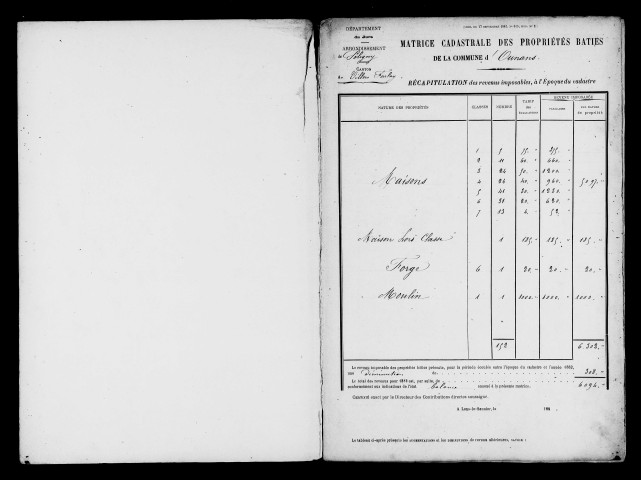 DÉPARTEMENT
du Jura
ARRONDISSEMENT
de Poligny
CANTON
de Villers Farlay
MATRICE CADASTRALE DES PROPRIÉTÉS BATIES
DE LA COMMUNE d'Ounans
RÉCAPITULATION des revenus imposables, à l'Époque du cadastre
NATURE DES PROPRIÉTÉS CLASSES NOMBRE TARIF REVENUS IMPOSABLES
par nature de propriété
1 5 75 375
2 11 60 660
3 24 50 1200
Maisons 4 24 40 960 5097
5 41 30 1230
6 31 20 620
7 13 4 52
Maison hors Classe 1 185 185 185
Forge 6 1 20 20 20
Moulin 1 1 1000 1000 1000
152 6302
Le revenu imposable des propriétés bâties présente, pour la période écoulée entre l'époque du cadastre et l'année 1882,
une diminution de 208
Le total des revenus pour 1883 est, par suite, de 6094
conformément aux indications de l'état balance annexé à la présente matrice.
Certifié exact par le Directeur des Contributions directes soussigné.
A Lons-le-Saunier, le 188
Le tableau ci-après présente les AUGMENTATIONS et les DIMINUTIONS de revenu ultérieures, SAVOIR :